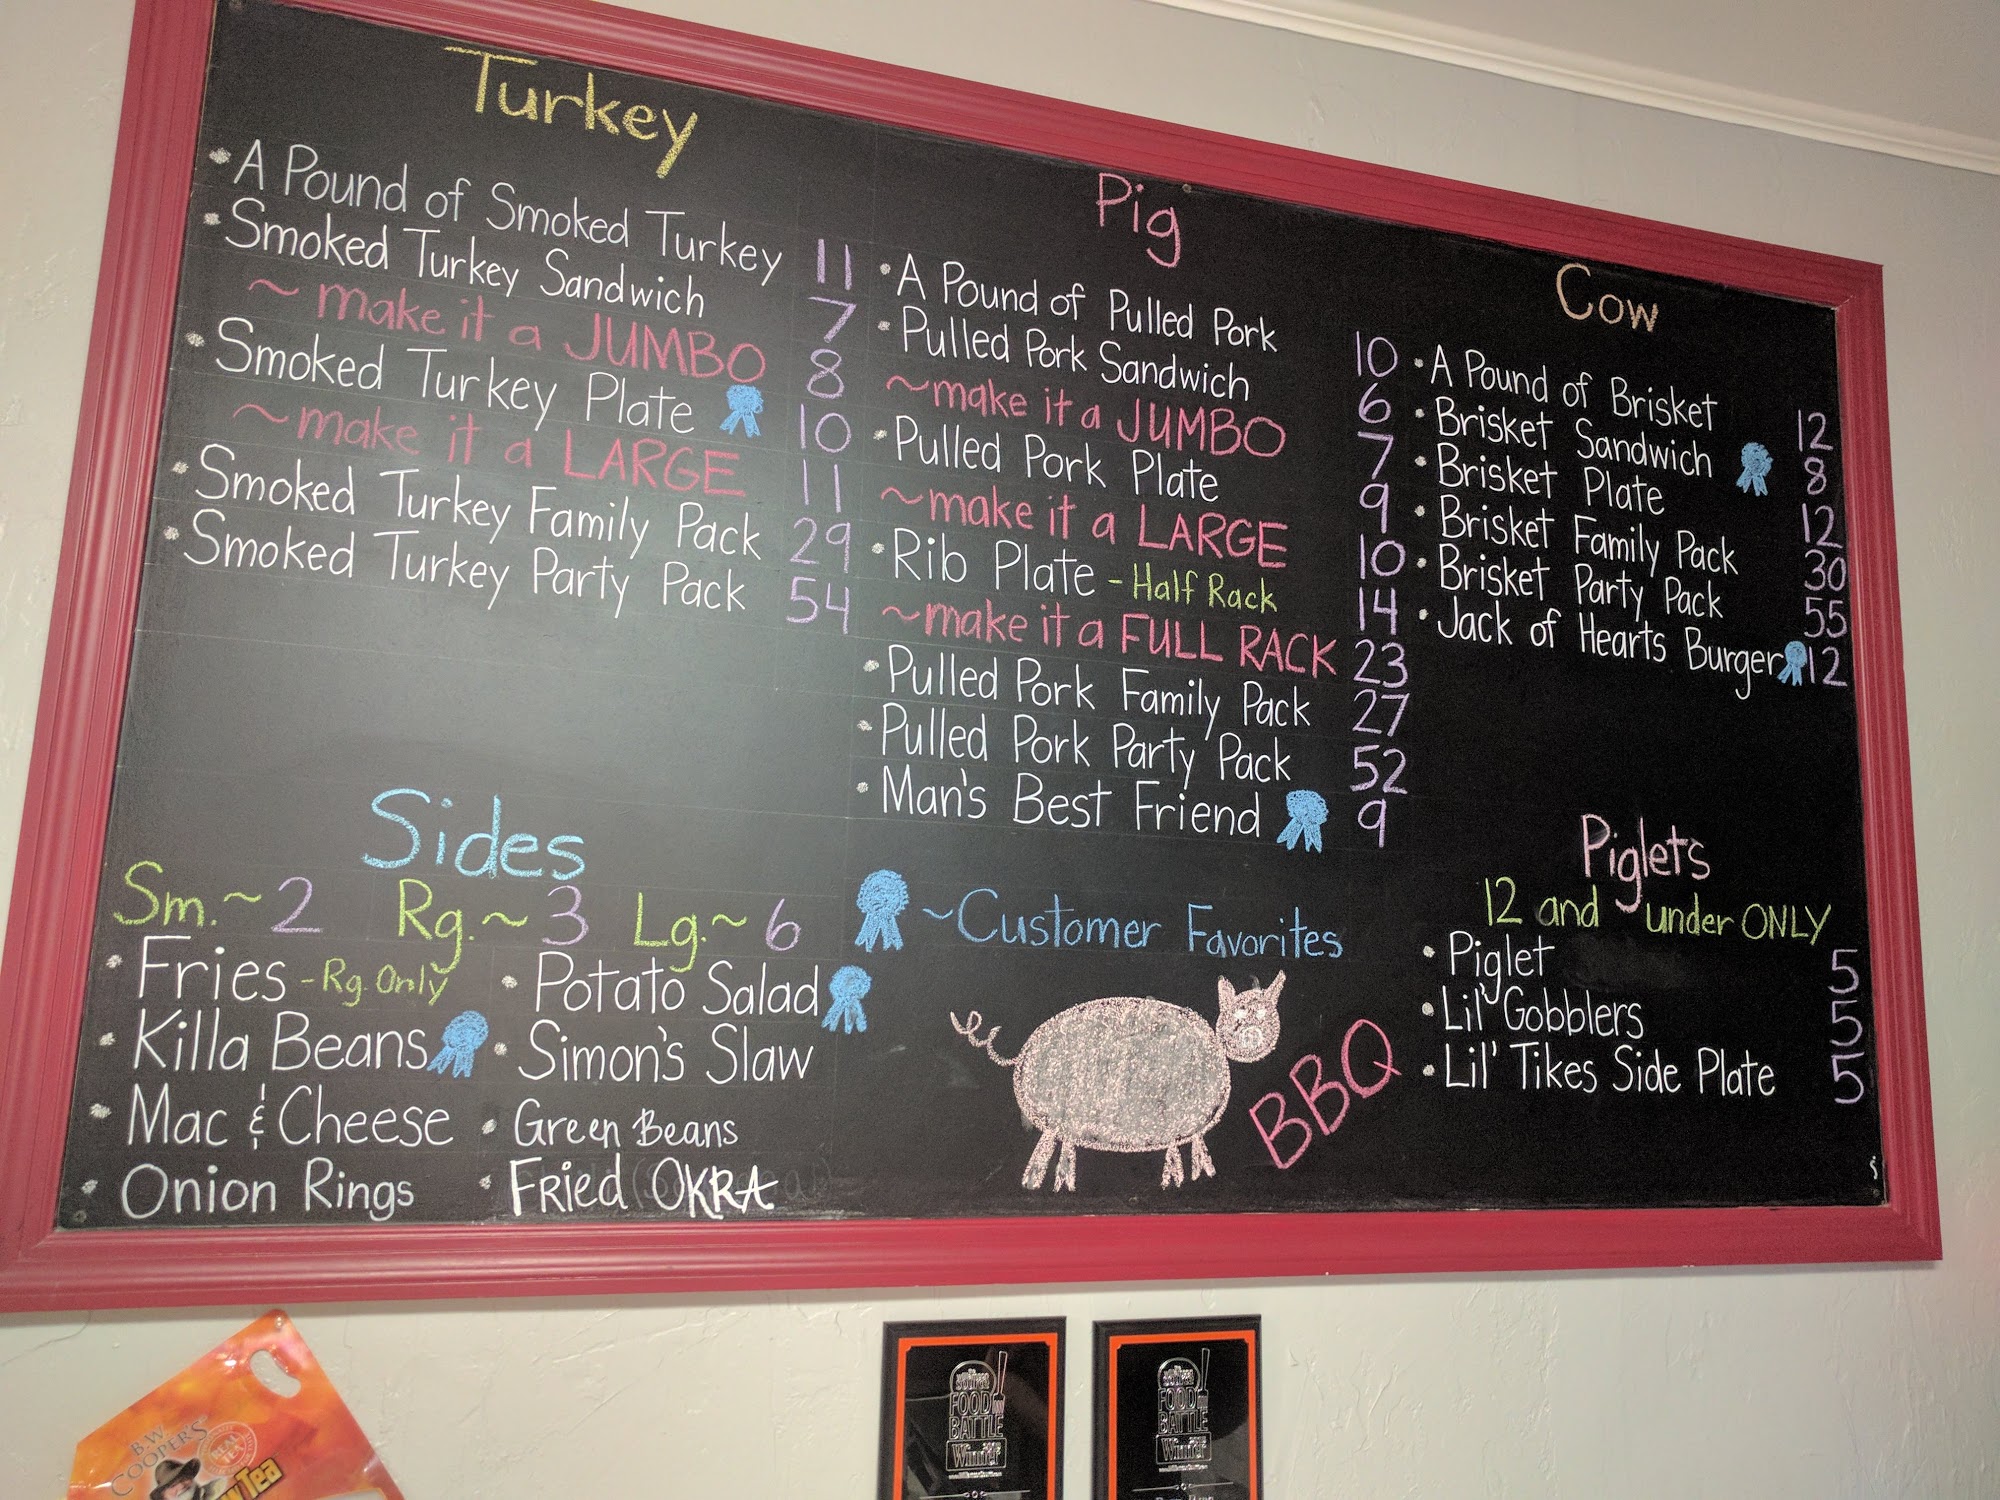 Turkey
• A Pound of Smoked Turkey 11
• Smoked Turkey Sandwich 7
~ make it a JUMBO 8
• Smoked Turkey Plate 10
~ make it a LARGE 11
• Smoked Turkey Family Pack 29
• Smoked Turkey Party Pack 54
Pig
• A Pound of Pulled Pork 10
• Pulled Pork Sandwich 6
~ make it a JUMBO 7
• Pulled Pork Plate 9
~ make it a LARGE 10
• Rib Plate - Half Rack 14
~ make it a FULL RACK 23
• Pulled Pork Family Pack 27
• Pulled Pork Party Pack 52
• Man's Best Friend 9
Cow
• A Pound of Brisket 12
• Brisket Sandwich 8
• Brisket Plate 12
• Brisket Family Pack 30
• Brisket Party Pack 55
• Jack of Hearts Burger 12
Sides
Sm. ~ 2 Rg. ~ 3 Lg. ~ 6
• Fries - Rg. Only
• Killa Beans
• Mac & Cheese
• Onion Rings
• Potato Salad
• Simon's Slaw
• Green Beans
• FRied OKRA
~ Customer Favorites
BBQ
Piglets
12 and under ONLY
• Piglet 5
• Lil' Gobblers 5
• Lil' Tikes Side Plate 5
B.W.
COOPER'S
REAL
TEA
Tea
FOOD
BATTLE
Winner
FOOD
BATTLE
Winner